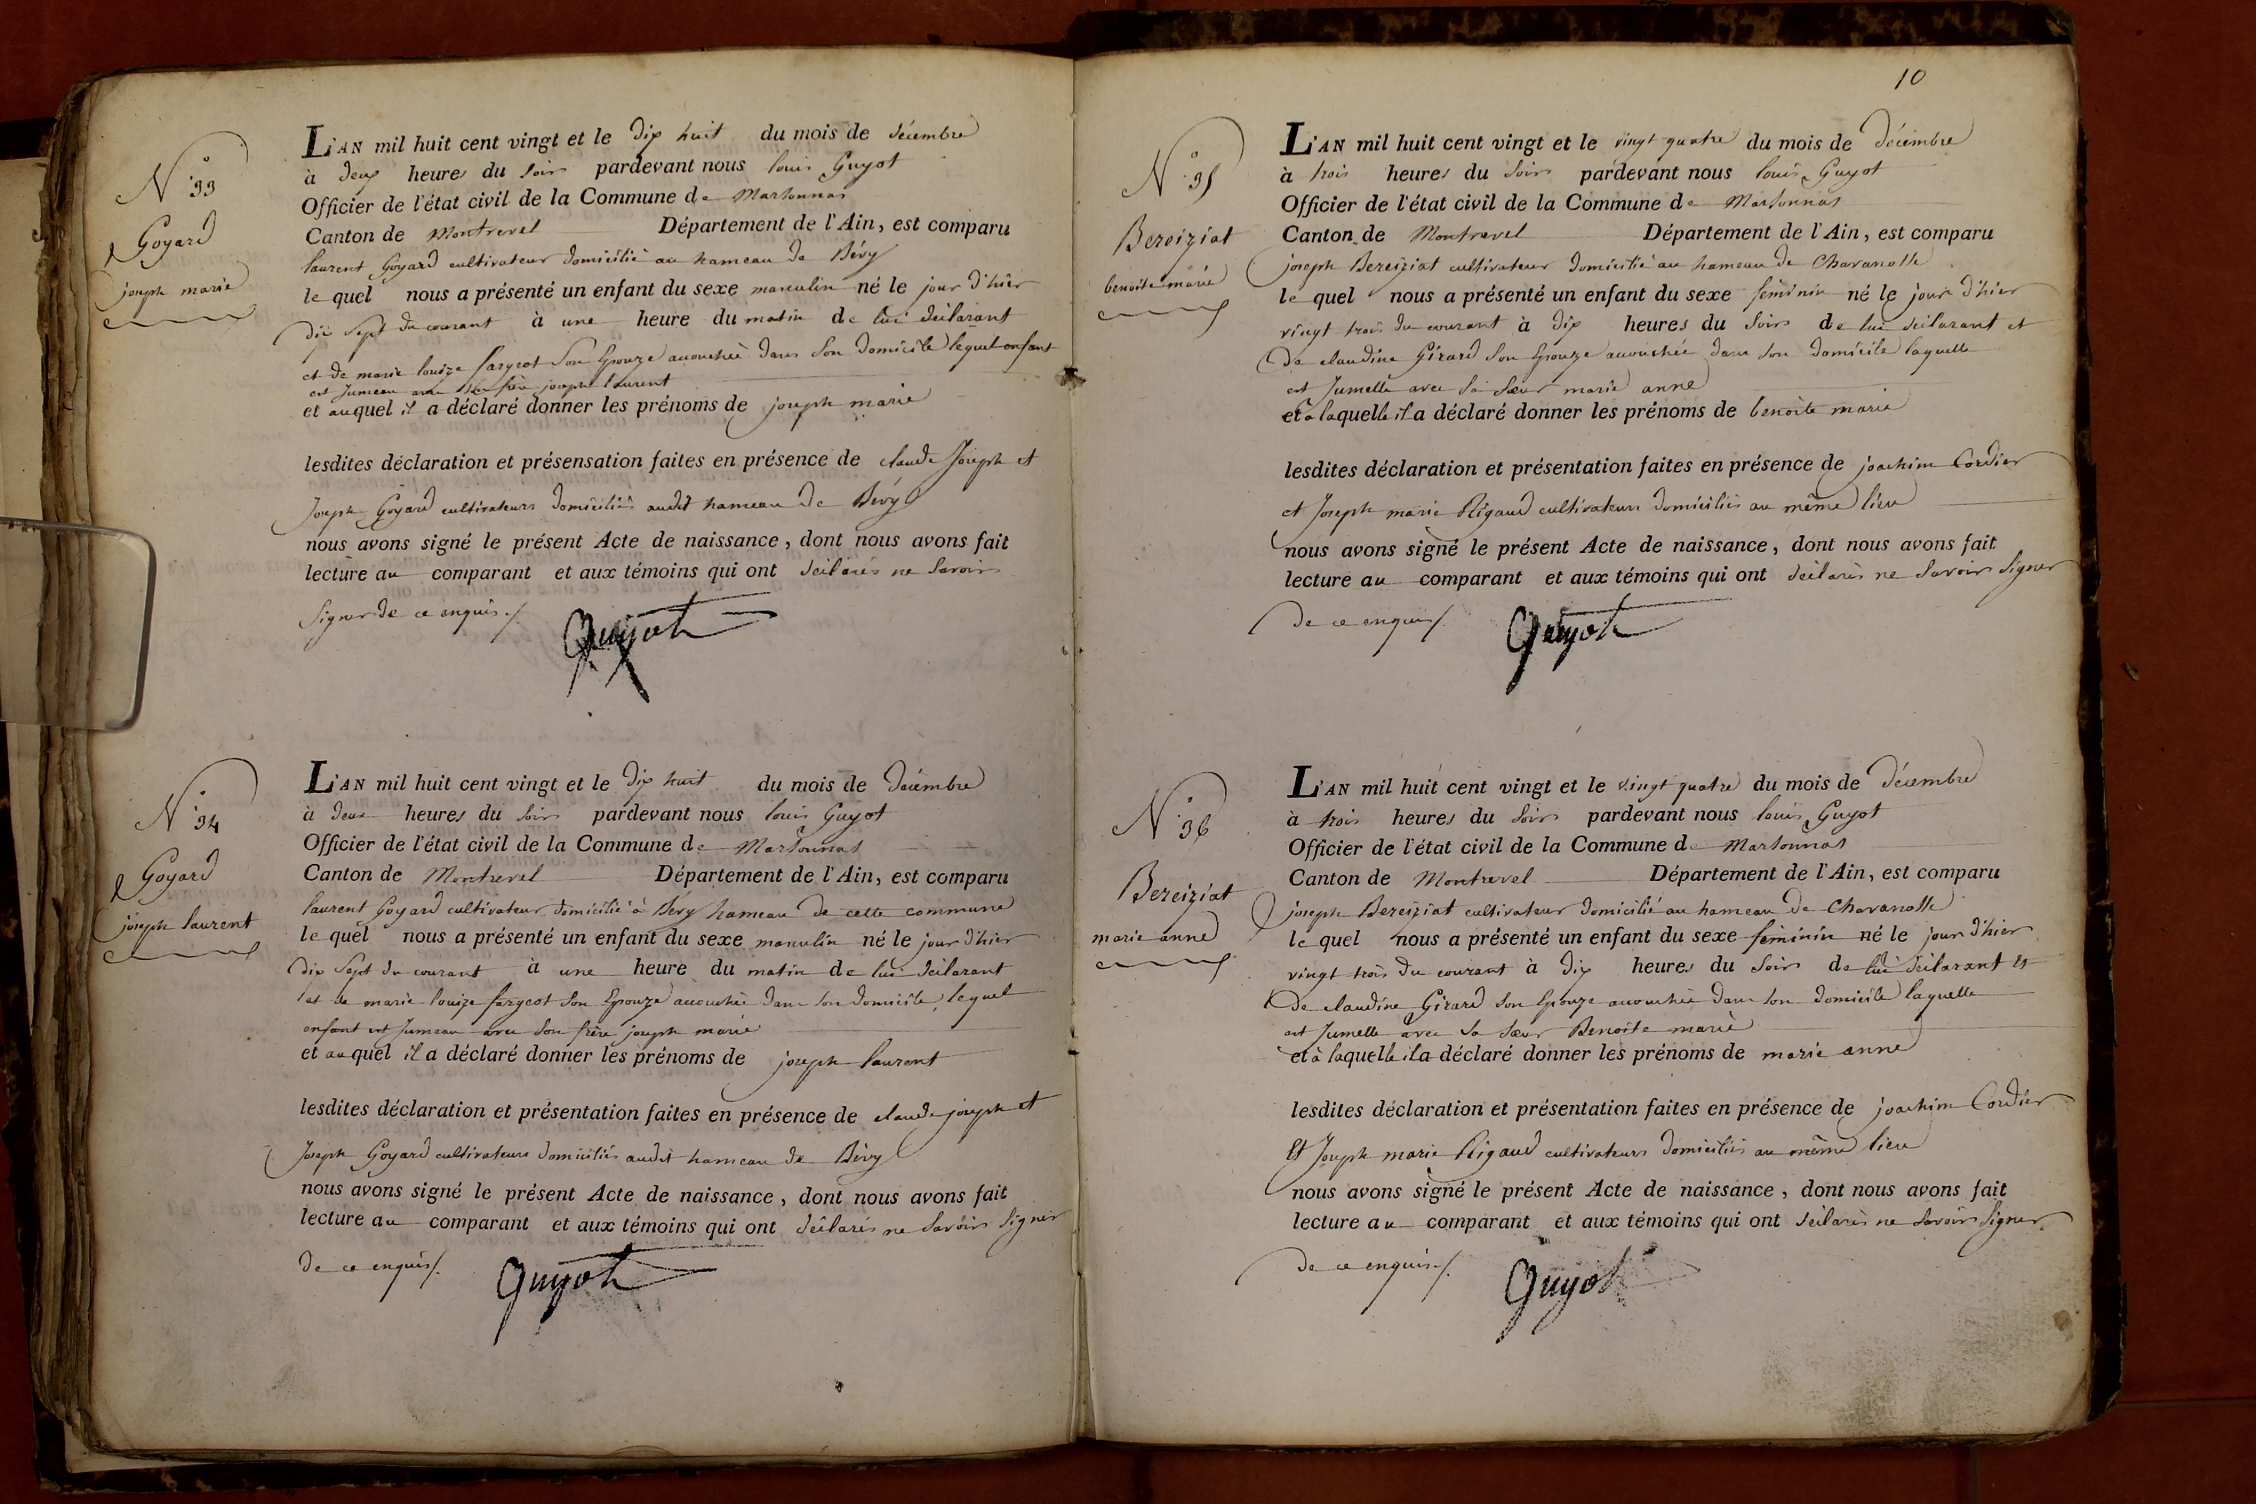 N° 33
Goyard
joseph marie
L'AN mil huit cent vingt et le dix huit du mois de décembre
à deux heures du soir pardevant nous louis Guyot
Officier de l'état civil de la Commune de Marsonnas
Canton de Montrevel Département de l'Ain, est comparu
laurent Goyard cultivateur domicilié au hameau de Bévy
le quel nous a présenté un enfant du sexe masculin né le jour d'hier
dix sept du courant à une heure du matin de lui déclarant
et de marie louize fargeot son Epouze accouchée dans son domicile lequel enfant
est Jumeau avec son frère joseph laurent
et auquel il a déclaré donner les prénoms de joseph marie
lesdites déclaration et présensation faites en présence de claude Joseph et
Joseph Goyard cultivateurs domiciliés audit hameau de Bévy
nous avons signé le présent Acte de naissance, dont nous avons fait
lecture au comparant et aux témoins qui ont déclarés ne savoir
signer de ce enquis ./.
Guyot
N° 34
Goyard
joseph laurent
L'AN mil huit cent vingt et le dix huit du mois de décembre
à deux heures du soir pardevant nous louis Guyot
Officier de l'état civil de la Commune de Marsonnas
Canton de Montrevel Département de l'Ain, est comparu
laurent Goyard cultivateur domicilié à Bévy hameau de cette commune
le quel nous a présenté un enfant du sexe masculin né le jour d'hier
dix sept du courant à une heure du matin de lui déclarant
et de marie louize fargeot son Epouze accouchée dans son domicile, lequel
enfant est Jumeau avec son frère joseph marie
et auquel il a déclaré donner les prénoms de joseph laurent
lesdites déclaration et présentation faites en présence de claude joseph et
Joseph Goyard cultivateurs domiciliés audit hameau de Bévy
nous avons signé le présent Acte de naissance, dont nous avons fait
lecture au comparant et aux témoins qui ont déclarés ne savoir signer
de ce enquis ./.
Guyot
10
N° 35
Bereiziat
benoite marie
L'AN mil huit cent vingt et le vingt quatre du mois de décembre
à trois heures du soir pardevant nous louis Guyot
Officier de l'état civil de la Commune de Marsonnas
Canton de Montrevel Département de l'Ain, est comparu
joseph Bereiziat cultivateur domicilié au hameau de Chavanosse
le quel nous a présenté un enfant du sexe féminin né le jour d'hier
vingt trois du courant à dix heures du soir de lui déclarant et
de claudine Girard son Epouze accouchée dans son domicile laquelle
est Jumelle avec sa sœur marie anne
et à laquelle il a déclaré donner les prénoms de benoite marie
lesdites déclaration et présentation faites en présence de joachim Cordier
et Joseph marie Rigaud cultivateurs domiciliés au même lieu
nous avons signé le présent Acte de naissance, dont nous avons fait
lecture au comparant et aux témoins qui ont déclarés ne savoir signer
de ce enquis ./.
Guyot
N° 36
Bereiziat
marie anne
L'AN mil huit cent vingt et le vingt quatre du mois de décembre
à trois heures du soir pardevant nous louis Guyot
Officier de l'état civil de la Commune de Marsonnas
Canton de Montrevel Département de l'Ain, est comparu
joseph Bereiziat cultivateur domicilié au hameau de Chavanosse
le quel nous a présenté un enfant du sexe féminin né le jour d'hier
vingt trois du courant à dix heures du soir de lui déclarant Et
de claudine Girard son Epouze accouchée dans son domicile laquelle
est Jumelle avec sa sœur Benoite marie
et à laquelle il a déclaré donner les prénoms de marie anne
lesdites déclaration et présentation faites en présence de joachim Cordier
Et Joseph marie Rigaud cultivateurs domiciliés au même lieu
nous avons signé le présent Acte de naissance, dont nous avons fait
lecture au comparant et aux témoins qui ont déclarés ne savoir signer
de ce enquis ./.
Guyot